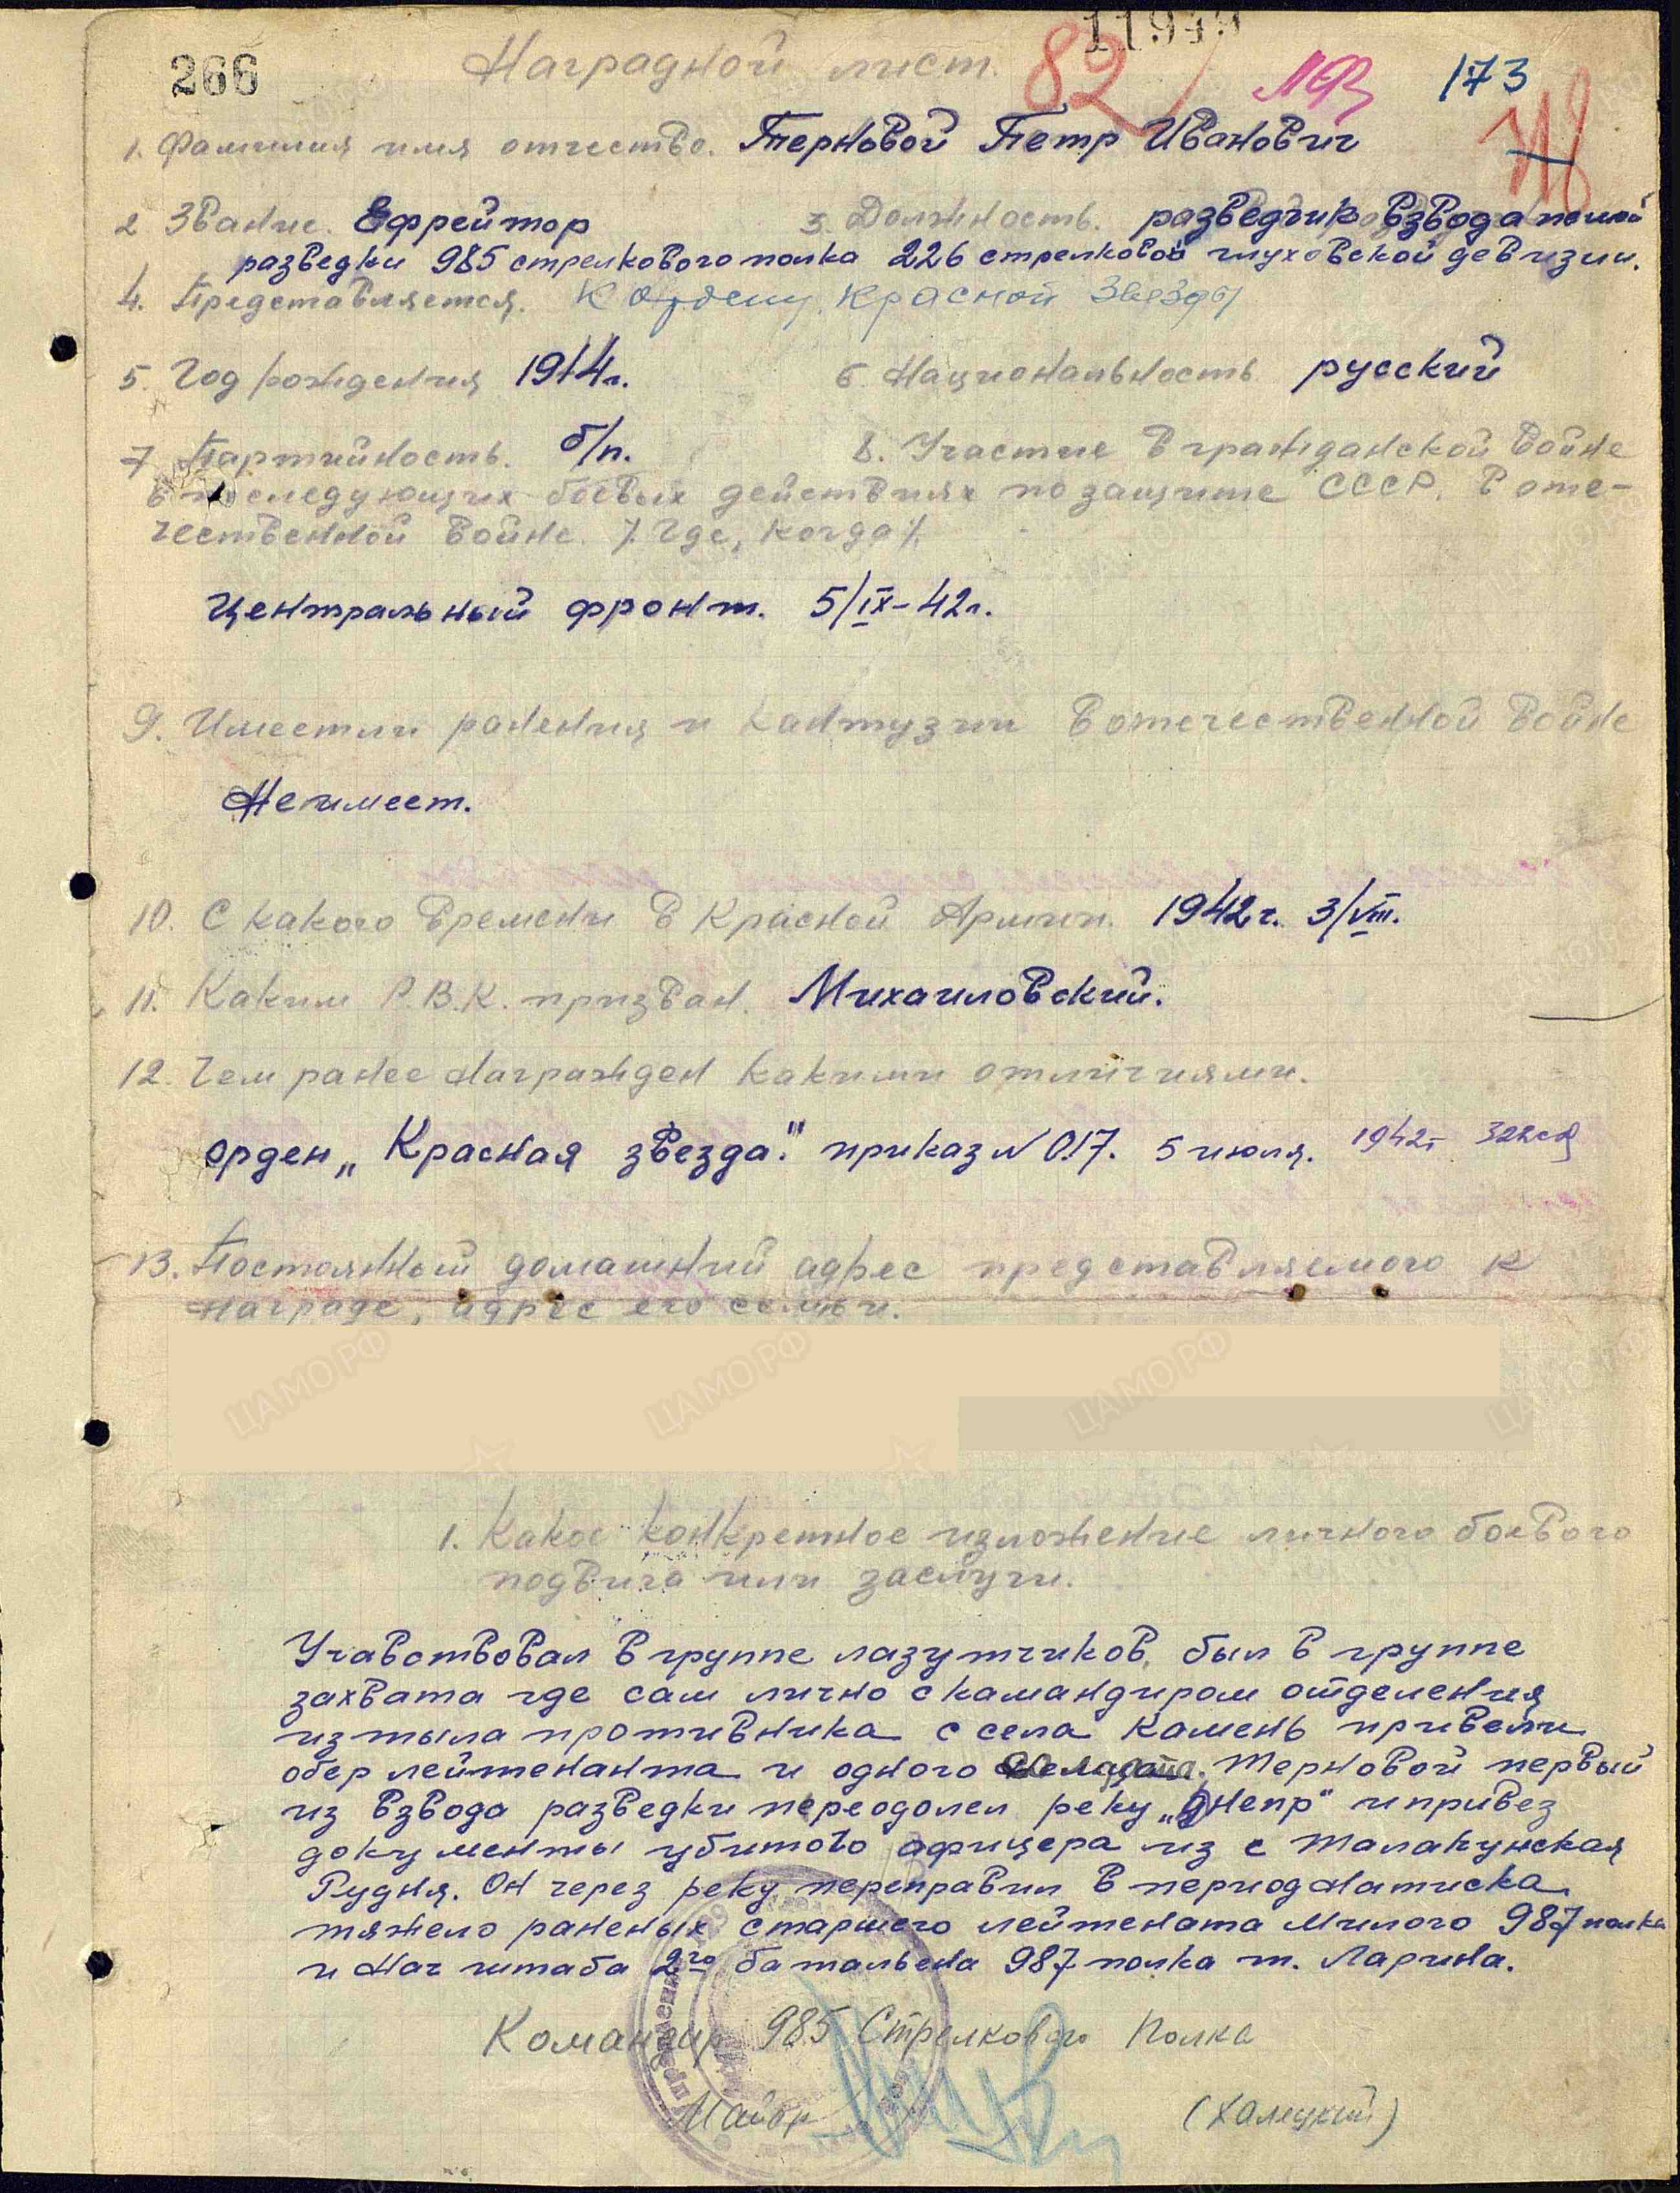 11949
266 Наградной лист. 82 173
1. Фамилия имя отчество. Терновой Петр Иванович
2 Звание. Ефрейтор 3. Должность. разведчик взвода пешой
разведки 985 стрелкового полка 226 стрелковой глуховской девизии.
4. Представляется. К Ордену Красной Звезды
5. Год рождения 1914г. 6 Национальность русский
7 Партийность. б/п. 8. Участие в гражданской войне
в последующих боевых действиях по защите СССР. В оте-
чественной войне. /. Где, когда /.
Центральный фронт. 5/IX-42г.
9. Имеет ли ранения и кантузии в отечественной войне
Не имеет.
10. С какого времени в Красной Армии. 1942г. 3/VIII.
11. Каким Р.В.К. призван. Михаиловский.
12. Чем ранее награжден какими отличиями.
орден „Красная звезда." приказ N 017. 5 июля. 1942г 322сд
13. Постоянный домашний адрес представляемого к
награде, адрес его семьи.
1. Какое конкретное изложение личного боевого
подвига или заслуги.
Учавствовал в группе лазутчиков, был в группе
захвата где сам лично с камандиром отделения
из тыла противника с села Камень привели
обер лейтенанта и одного солдата. Терновой первый
из взвода разведки переодолел реку „Днепр" и привез
документы убитого афицера из с Талакунская
Рудня. Он через реку переправил в период натиска
тяжело раненых старшего лейтената Милого 987 полка
и нач штаба 2го батальена 987 полка т. Ларина.
Командир 985 Стрелкового Полка
Майор (Халецкий)